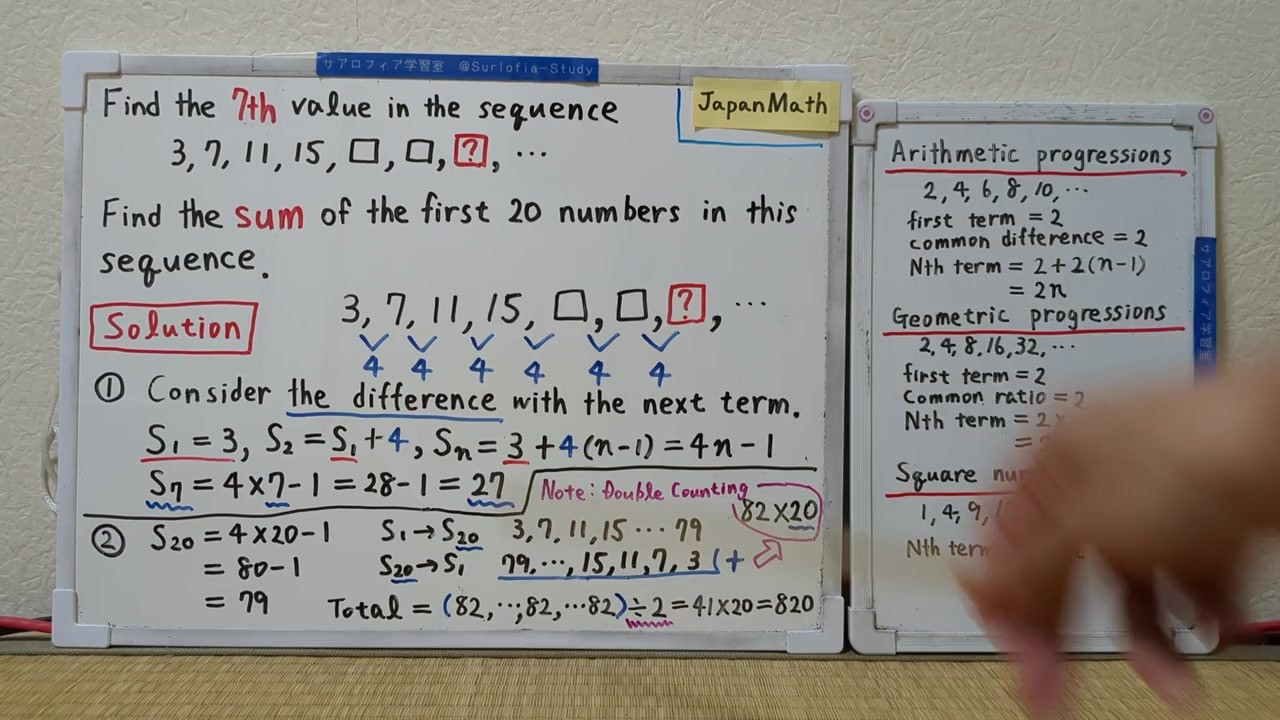 サアロフィア学習室 @Surlofia-Study
JapanMath
Find the 7th value in the sequence
3, 7, 11, 15, □, □, ?, ⋯
Find the sum of the first 20 numbers in this
sequence.
Solution
3, 7, 11, 15, □, □, ?, ⋯
4 4 4 4 4 4
① Consider the difference with the next term.
S₁ = 3, S₂ = S₁ + 4, Sn = 3 + 4(n-1) = 4n - 1
S₇ = 4×7-1 = 28-1 = 27
Note: Double Counting
82×20
② S₂₀ = 4×20-1
= 80-1
= 79
S₁→S₂₀ 3, 7, 11, 15 ⋯ 79
S₂₀→S₁ 79, ⋯, 15, 11, 7, 3 (+
Total = (82, ⋯, 82, ⋯ 82) ÷ 2 = 41×20 = 820
Arithmetic progressions
2, 4, 6, 8, 10, ⋯
first term = 2
common difference = 2
Nth term = 2+2(n-1)
= 2n
Geometric progressions
2, 4, 8, 16, 32, ⋯
first term = 2
Common ratio = 2
Nth term = 2
Square
1, 4, 9,
Nth term
サアロフィア学習室